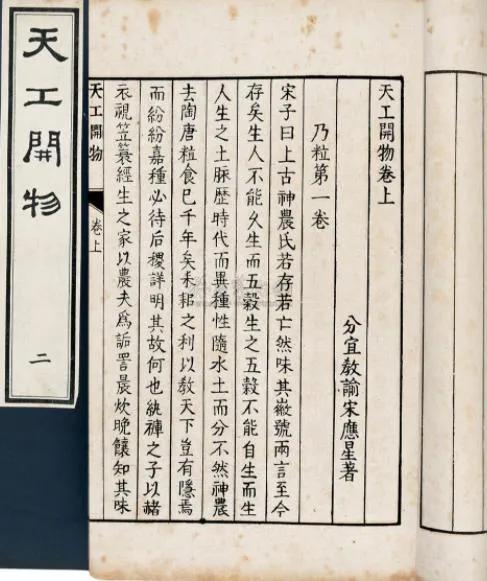 天工開物卷上
分宜教諭宋應星著
乃粒第一卷
宋子曰上古神農氏若存若亡然味其徽號兩言至今
存矣生人不能久生而五穀生之五穀不能自生而生
人生之土脉歷時代而異種性隨水土而分不然神農
去陶唐粒食已千年矣耒耜之利以教天下豈有隱焉
而紛紛嘉種必待后稷詳明其故何也紈褲之子以赭
衣視笠蓑經生之家以農夫爲詬詈晨炊晚饟知其味
天工開物 卷上
天工開物 二